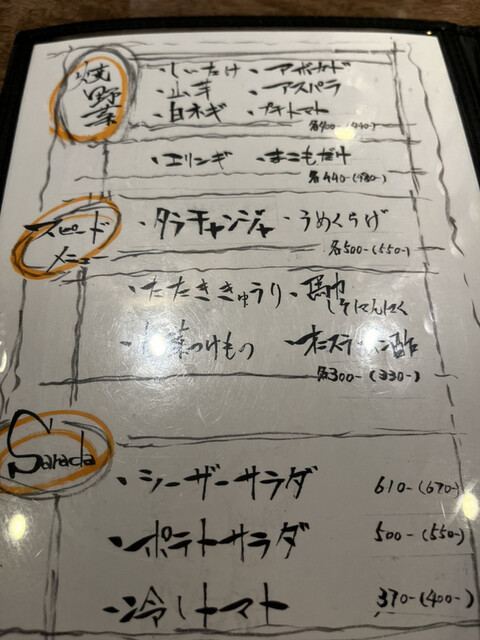 焼野菜
・しいたけ ・アボカド
・山芋 ・アスパラ
・白ネギ ・プチトマト
各400-(440-)
・エリンギ ・まこもだけ
各440-(480-)
スピード
メニュー
・タラチャンジャ ・うめくらげ
各500-(550-)
・たたききゅうり ・
しそにんにく
つけもの ・オニスラポン酢
各300-(330-)
Sarada
・シーザーサラダ 610-(670-)
・ポテトサラダ 500-(550-)
・冷しトマト 370-(400-)